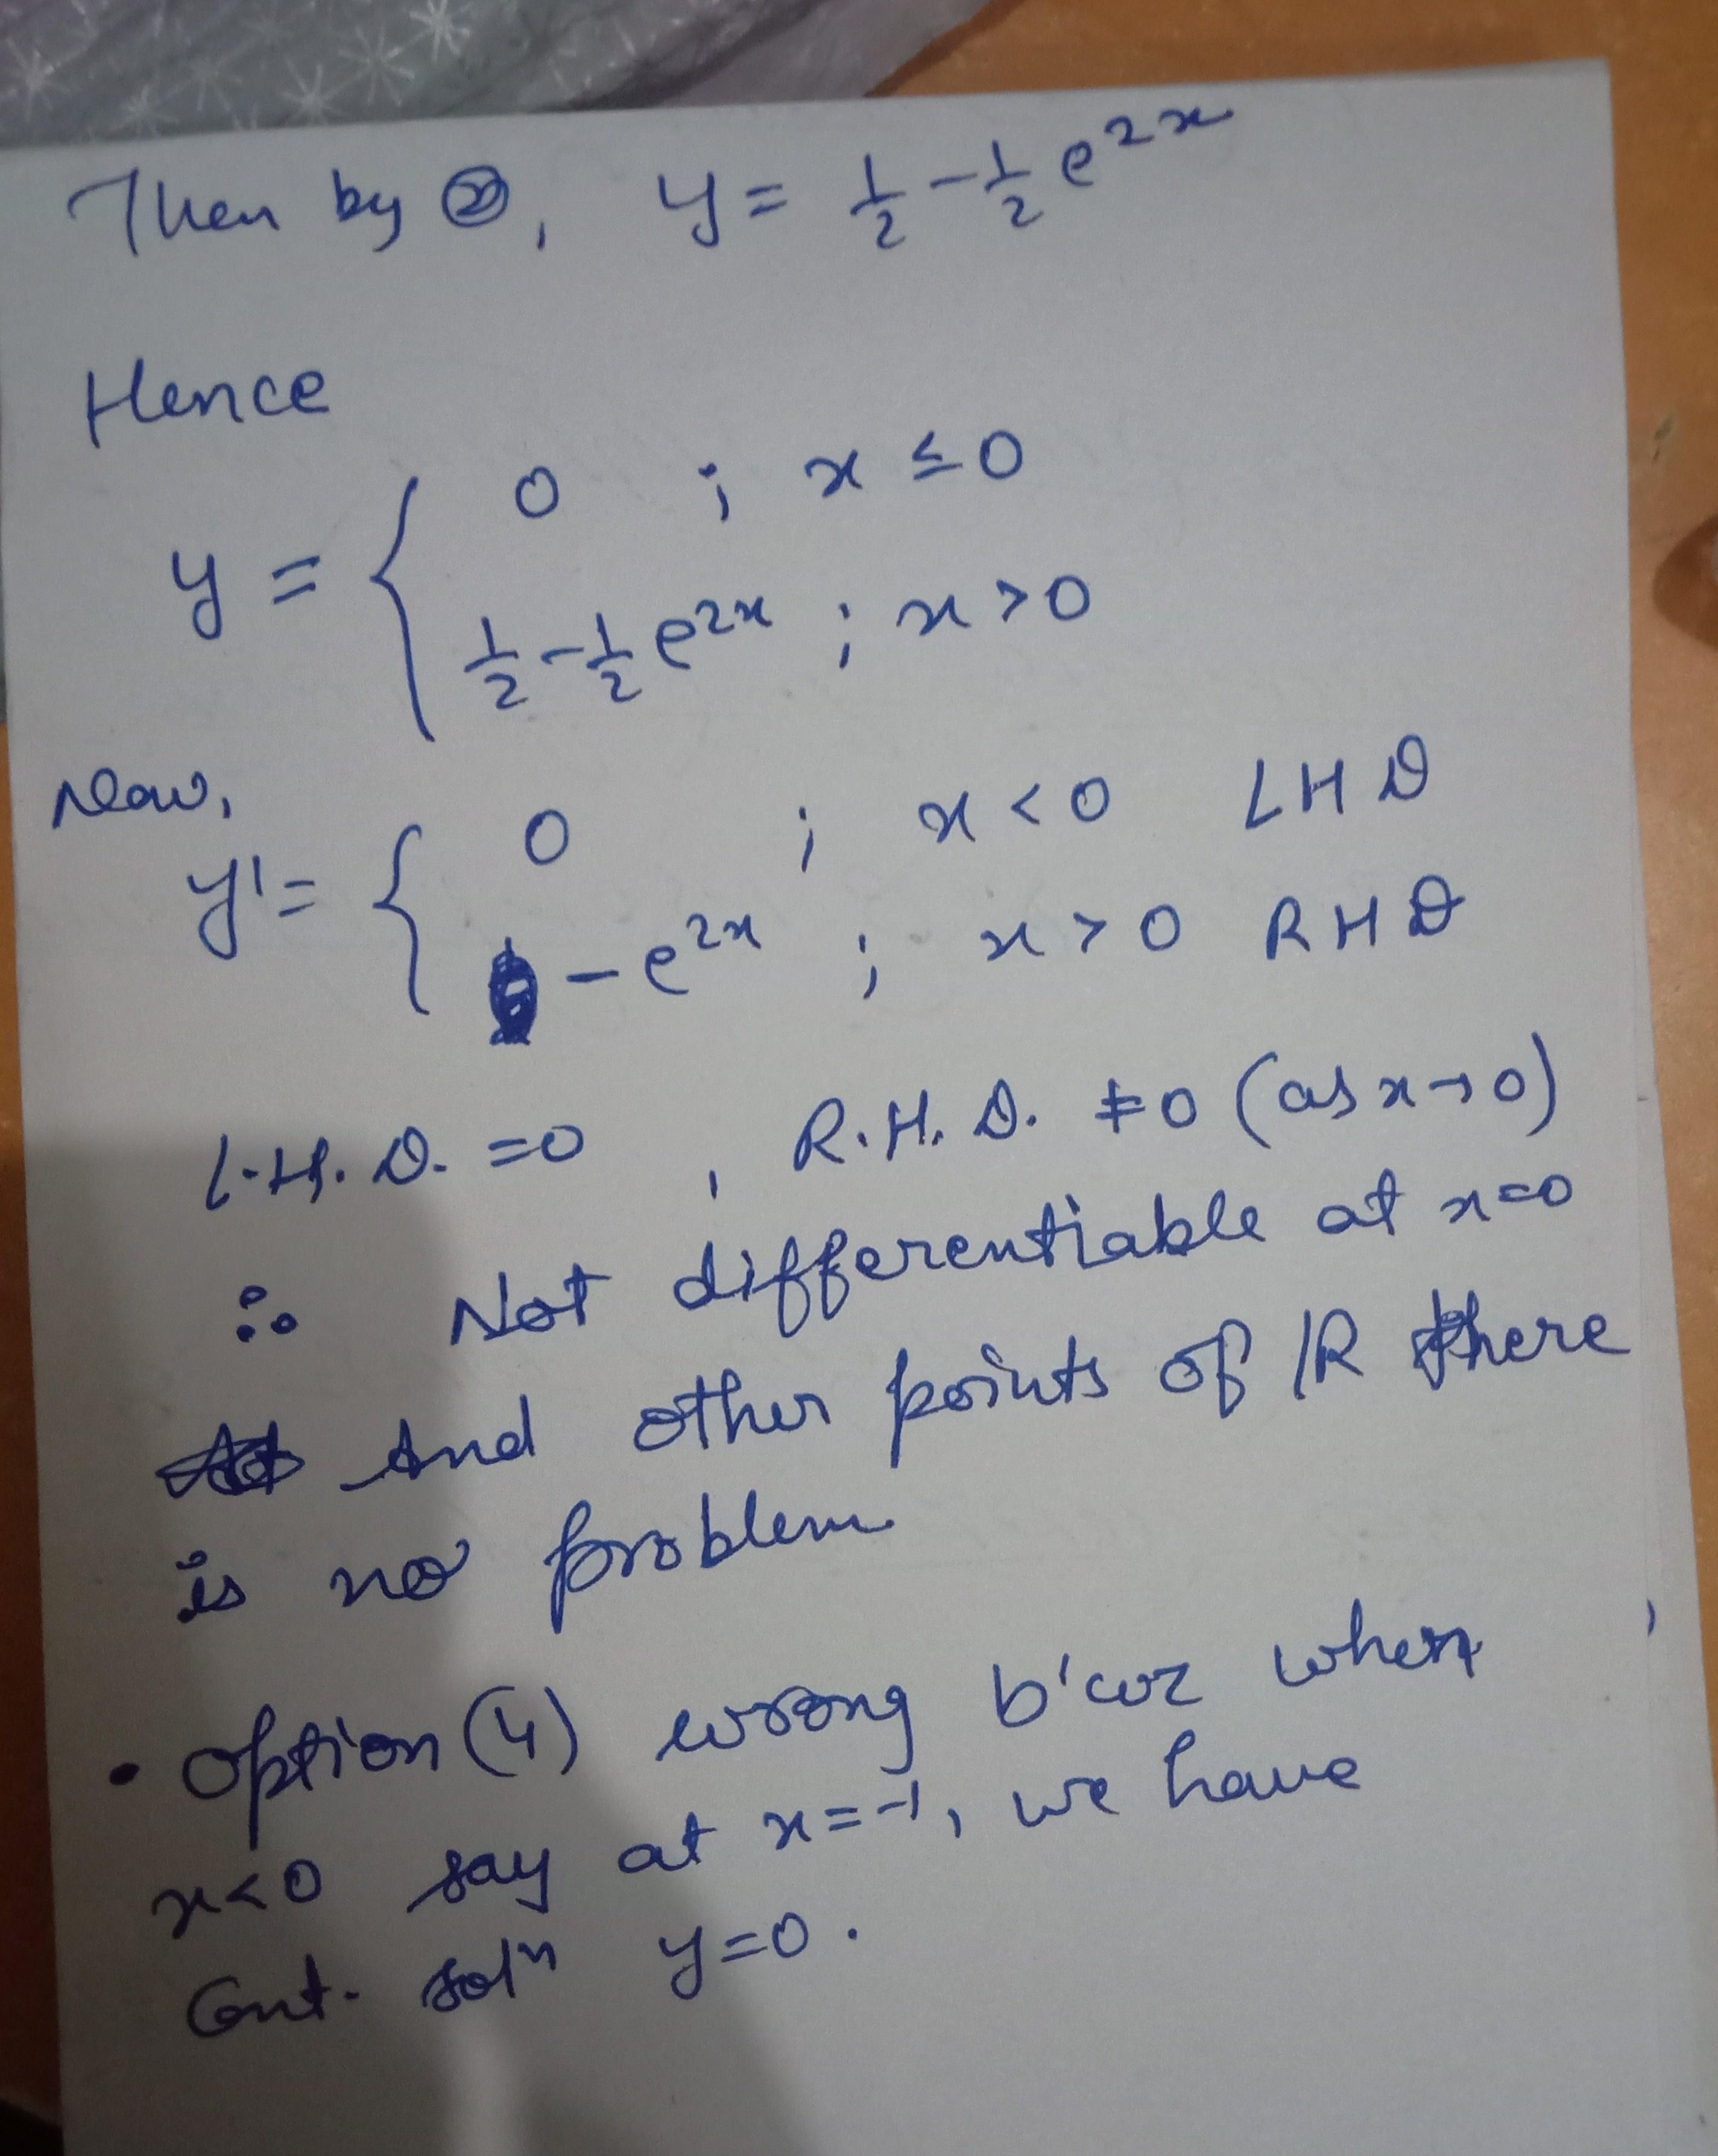 Then by ②, y = 1/2 - 1/2 e^{2x}
Hence
y = { 0 ; x ≤ 0
1/2 - 1/2 e^{2x} ; x > 0
Now,
y' = { 0 ; x < 0 LHD
- e^{2x} ; x > 0 RHD
L.H.D. = 0 , R.H.D. ≠ 0 (as x → 0)
∴ Not differentiable at x=0
And other points of ℝ there
is no problem
• Option (4) wrong b'coz when
x<0 say at x=-1, we have
Cont. solⁿ y=0.